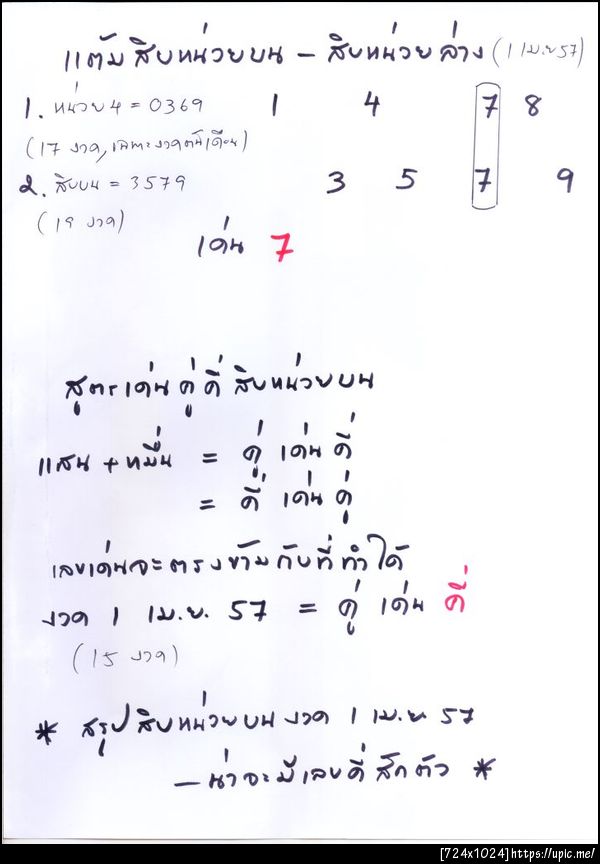 แต้มสิบหน่วยบน - สิบหน่วยล่าง (1 เม.ย 57)
1. หน่วย 4 = 0369 1 4 7 8
(17 งวด, เฉพาะงวดต้นเดือน)
2. สิบบน = 3579 3 5 7 9
(19 งวด)
เด่น 7
สูตรเด่นคู่คี่ สิบหน่วยบน
แสน + หมื่น = คู่ เด่น คี่
= คี่ เด่น คู่
เลขเด่นจะตรงข้ามกับที่ทำได้
งวด 1 เม.ย. 57 = คู่ เด่น คี่
(15 งวด)
* สรุปสิบหน่วยบนงวด 1 เม.ย. 57
- น่าจะมีเลขคี่สักตัว *
[724x1024]https://upic.me/